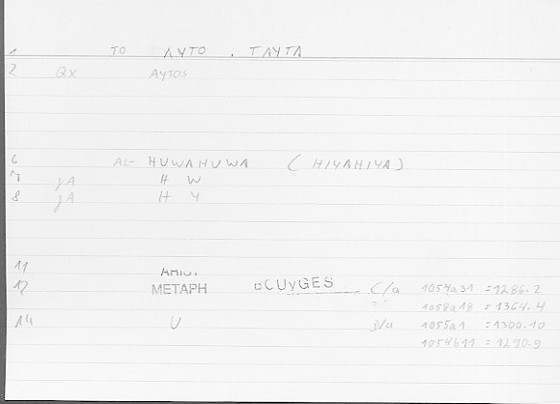 1 TO AYTO . TAYTA
2 QX AYTOS
6 AL- HUWAHUWA (HIYAHIYA)
7 yA H W
8 yA H Y
11 ARIST
12 METAPH BCUYGES C/a 1054a31 =1286.2
1058a18 =1364.4
14 U 3/a 1055a1 =1300.10
1054b11 =1290.9